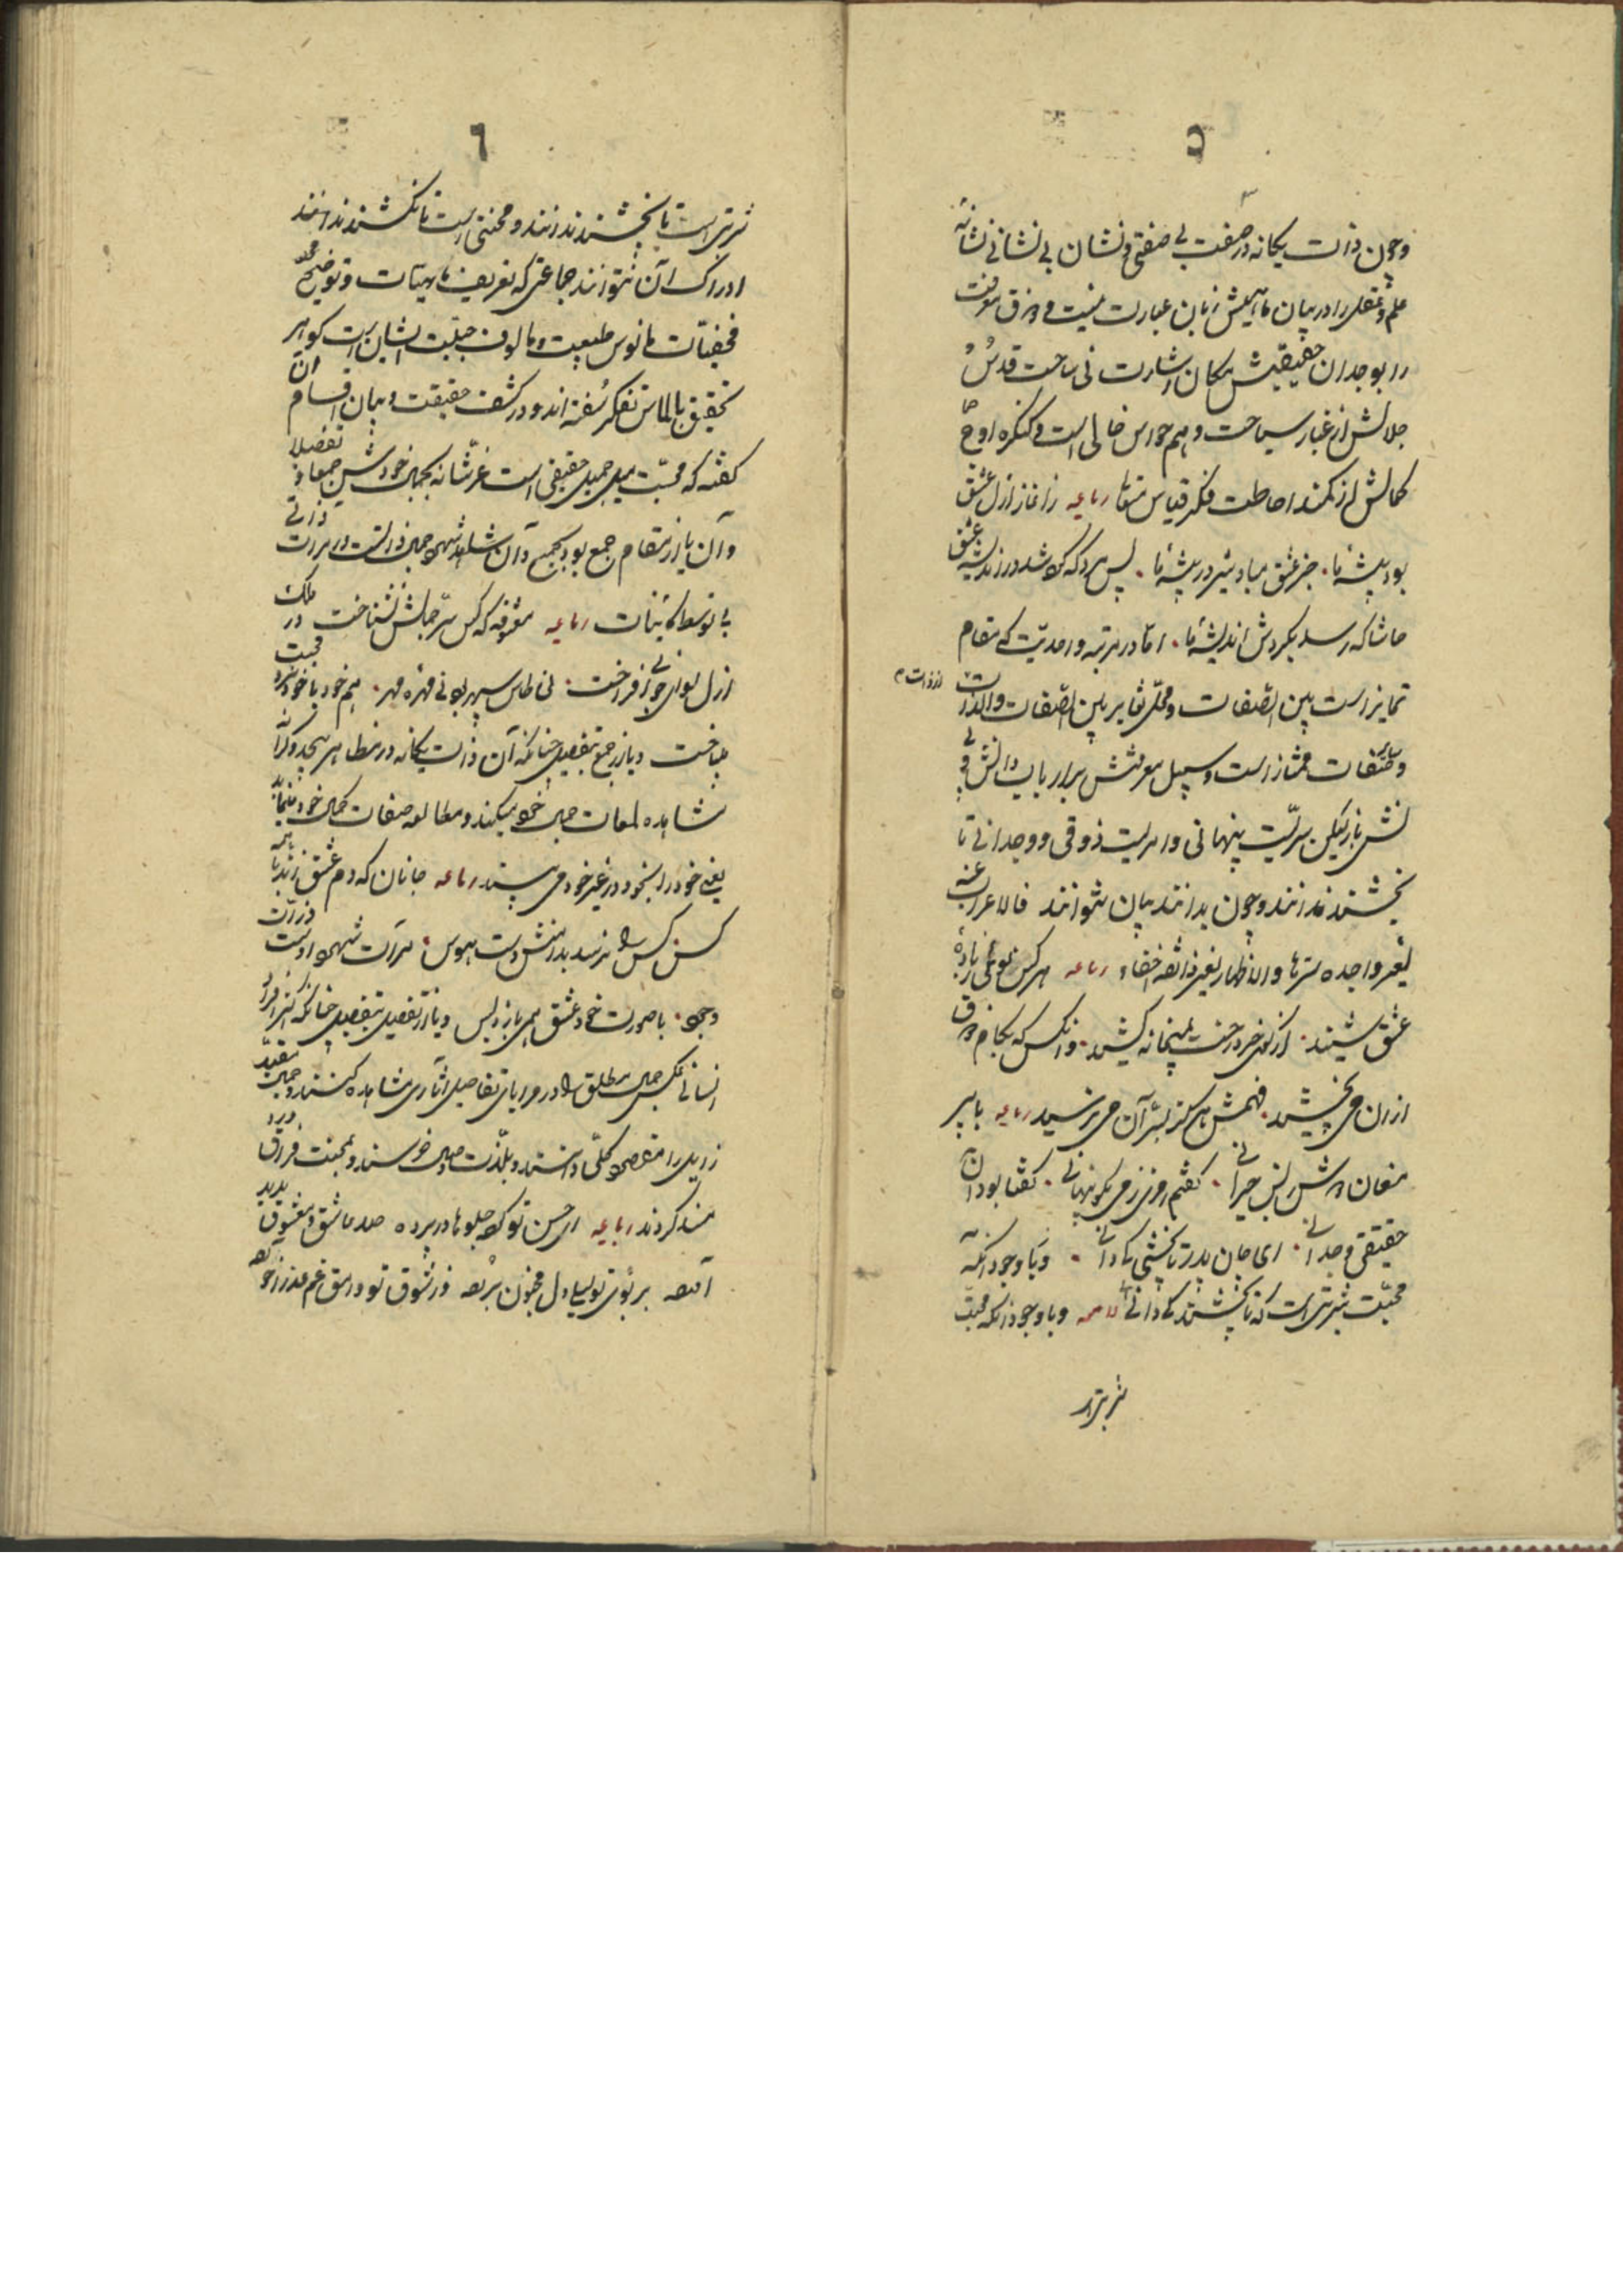 ٥
وچون ذات یکانه در صفت بی صفتی و نشان بی نشانی نشانهٔ
علم و عقل را در بیان ماهیتش زبان عبارت نیست و ذوق معرفت
را بوجدان حقیقتش مکان اشارت نی ساحت قدس
جلالش از غبار سیاحت وهم حواس خالی است و کنکره اوج
کمالش از کمند احاطت فکر قیاس متعالی رباعیه زاغاز ازل عشق
بود پیشهٔ ما. جز عشق مباد شیر در بیشهٔ ما. پس هر که شد در اندیشهٔ عشق
حاشا که رسد بکردش اندیشهٔ ما. اما در مرتبه واحدیت که مقام
تمایز است بین الصفات و محل تغایر بین الصفات والذات
از ذات و صفات ممتاز است و سبیل معرفتش بر ارباب دانش و
نش باز لیکن سریست پنهانی و امریست ذوقی و وجدانی تا
نچشند ندانند و چون بدانند بیان نتوانند فالاعراب عنه
لغیر واجده ستر والاظهار لغیر ذائقه اخفاء رباعیه هر کس بوئی ز بادهٔ
عشق شنید. از کوی خرد رخت بمیخانه کشید. وانکس که بکام ذوق
ازان می نچشید. فهمش هرکز بسر آن می نرسید رباعیه با پیر
مغان دوش ز بس حیرانی. کفتم رمزی ز می بکو پنهانی. کفتا بود آن
حقیقتی وجدانی. ای جان پدر تا نچشی کی دانی. و با وجود آنکه
محبت شربتی است که تا نچشند کی دانند و با وجود آنکه محبت
شربتی
٦
شربتی است تا نچشند ندانند و محنتی است تا نکشند ندانند
ادراک آن نتوانند جماعتی که تعریف ماهیات و توضیح
مخفیات مانوس طبیعت و مالوف جبلت ایشان است کوهر
تحقیق بالماس تفکر سفته اند و در کشف حقیقت و بیان اقسام آن
کفته که محبت میل جمیل حقیقی است عز شانه بجمال خودش جمعا و تفصیلا
و آن یا از مقام جمع بود بجمع و آن شهود جمال ذاتست در مرآت ذات
بی توسط کائنات رباعیه معشوقه که کس سر جمالش نشناخت در ملک
ازل لوای خوبی افراخت. نی طاس سپهر بود نی مهره مهر. هم خود با خود نرد محبت
باخت و یا از جمع بتفصیل چنانکه آن ذات یکانه در مظاهر بیحد و کرانه
مشاهده لمعات جمال خود میکند و مطالعه صفات کمال خود مینماید
یعنی خود را بخود در غیر خود می بیند رباعیه جانان که دم عشق زند با همه
کس کس را نرسد بدامنش دست هوس. مرآت شهود اوست ذرات
وجود. با صورت خود عشق همی بازد و بس و یا از تفصیل بتفصیل چنانکه اکثر افراد
انسانی عکس جمال مطلق را در مرایای تفاصیل آثاری مشاهده کنند و جمال مقید
زایل را مقصود کلی دانند و بلذت وصال خرسند و بمحنت فراق درد
مند کردند رباعیه ای حسن تو کرده جلوها در پرده صد عاشق و معشوق پدید
آورده بر بوی تو لیلی دل مجنون برده وز شوق تو وامق غم عذرا خورده